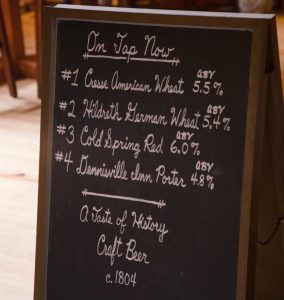 On Tap Now
#1 Cresse American Wheat ABV 5.5%
#2 Hildreth German Wheat ABV 5.4%
#3 Cold Spring Red ABV 6.0%
#4 Dennisville Inn Porter ABV 4.8%
A Taste of History
Craft Beer
c.1804